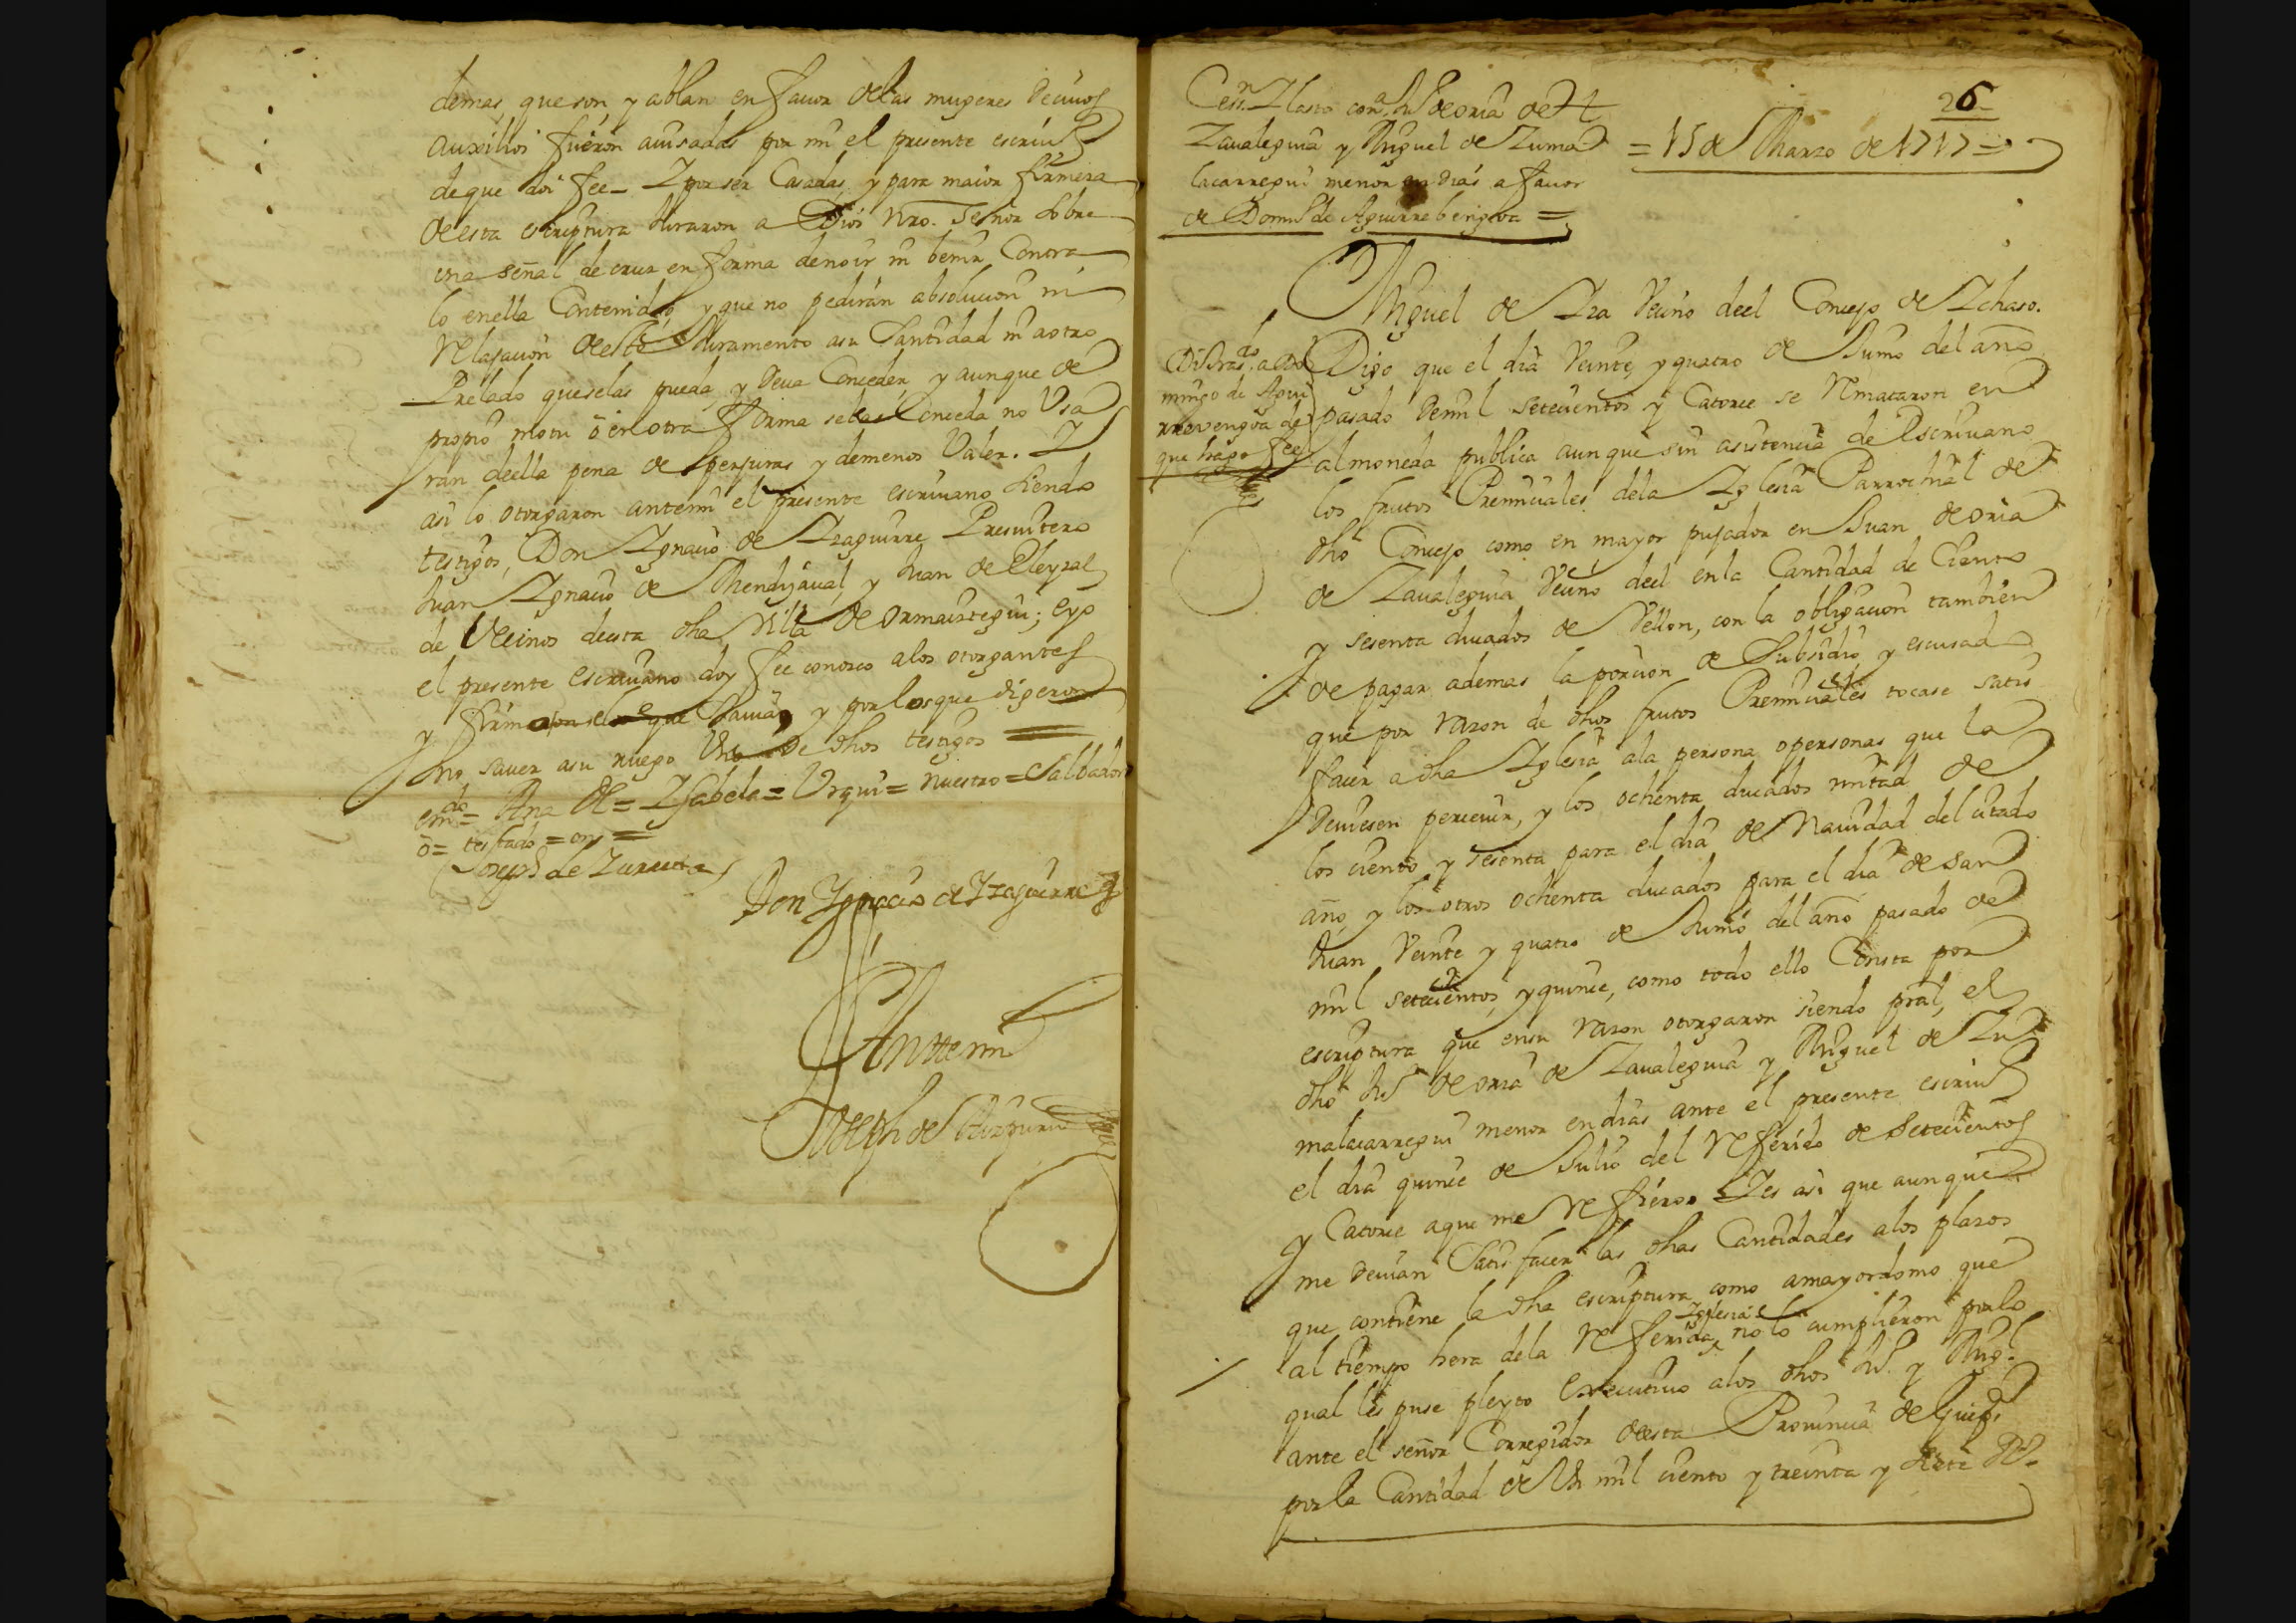 demas, que son, y ablan en fauor delas mugeres de cuios
auxilios fueron auisadas por mi el presente escriuº
de que doi fee = Y por ser Casadas, y para maior firmeza
de esta escriptura Juraron a Dios nro. Señor sobre
vna señal de cruz en forma de no ir ni benir Contra
lo en ella Contenido, y que no pediran absolucion ni
relajacion de este Juramento a su Santidad ni a otro
Prelado que selas pueda y deua Conceder, y aunque de
propio motu ô en otra forma se las Conceda no Vsa
ran de ella pena de perjuras y de menos Valer. Y
asi lo otorgaron ante mi el presente escriuano siendo
testigos, Don Ygnacio de Yzaguirre Presuitero
Juan Ygnacio de Mendizaual, y Juan de Eleyzal
de Vecinos de esta dha Villa de Ormaiztegui; e yo
el presente escriuano doy fee conozco a los otorgantes
y firmaron que sauian y por los que digeron
no sauer a su ruego Vno de dhos testigos =
emdo = Ana de = Ysabela = Vrqui = nuestro = Saluados
ô = testado = on =
Joseph de Zurutuza
Don Ygnacio de Yzaguirre
Antte mi
Joseph de Aizpuru
26
Cess.n Y lasto con.a Jus de oria de
Zaualeguia y Miguel de Zuma
lacarregui menor en dias a fauor
de Domis de Aguirrebengoa =
= 15 de Marzo de 1717 =
Miguel de Yza Vecino de el Concejo de Ychaso.
Di Tras.do a Do
mingo de Agui
rrevengoa de
que hago fee
Digo que el dia Veinte, y quatro de Junio del año
pasado de mil setecientos y Catorce se remataron en
almoneda publica aunque sin asistencia de Escriuano
los frutos Premiciales de la Yglesia Parrochial de
dho Concejo como en mayor pujador en Juan de oria
de Zaualeguia Vecino de el en la Cantidad de Ciento
y sesenta ducados de Vellon, con la obligacion tambien
de pagar ademas la porcion de Subsidio y escusado
que por razon de dhos frutos Premiciales tocase satis
facer a dha Yglesia a la persona, o personas que la
deuiesen perceuir, y los ochenta ducados mitad de
los ciento y sesenta para el dia de Nauidad del citado
año, y los otros ochenta ducados para el dia de san
Juan Veinte y quatro de Junio del año pasado de
mil setecientos, y quince, como todo ello Consta por
escriptura que en su razon otorgaron siendo pral, el
dho Jus de oria de Zaualeguia y Miguel de Zu
malacarregui menor en dias ante el presente escriuº
el dia quince de Julio del referido de setecientos
y Catorce a que me refiero. Y es asi que aunque
me deuian Satisfacer las dhas Cantidades a los plazos
que contiene la dha escriptura, como a mayordomo que
al tiempo hera de la referida Yglesia no lo cumplieron por lo
qual les puse pleyto Executiuo a los dhos Jus. y Migl
ante el señor Corregidor de esta Prouincia de Guipz
por la Cantidad de Vn mil ciento y treinta y siete Rs.